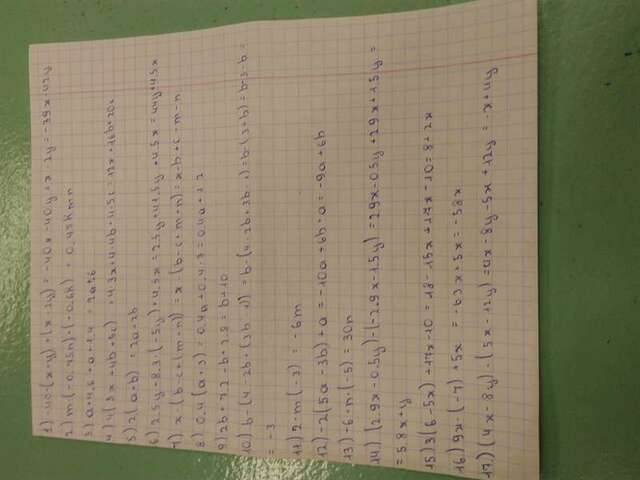 1) -40·(x+y)+(x-2y) = -40x-40y+x 2y = -39x-42y
2) m(-0,75n)·(-0,6k) = 0,45kmn
3) a+4,6+a+1,4 = 2a+6
4) 4(3x+4b+5c) = 4·3x+4·4b+4·5c = 12x+16b+20c
5) 2(a+b) = 2a+2b
6) 2,5y-8,3·(-5y)+4,5x = 2,5y+41,5y+4,5x = 44y+4,5x
7) x-(b-c+(m+n)) = x-(b-c+m+n) = x-b+c-m-n
8) 0,4(a+3) = 0,4a+0,4·3 = 0,4a+1,2
9) 2b+7,2-b+2,8 = b+10
10) b-(4-2b+(3b-1)) = b-(4-2b+3b-1) = b-(3+b) = b-3-b =
= -3
11) 2m(-3) = -6m
12) -2(5a-3b)+a = -10a+6b+a = -9a+6b
13) -6·n·(-5) = 30n
14) (2,9x-0,5y)-(-2,9x-1,5y) = 2,9x-0,5y+2,9x+1,5y =
= 5,8x+y
15) 3(6-5x)+17x-10 = 18-15x+17x-10 = 8+2x
16) 9x·(-7)+5x = -63x+5x = -58x
17) (4x-8y)-(5x-12y) = 4x-8y-5x+12y = -x+4y